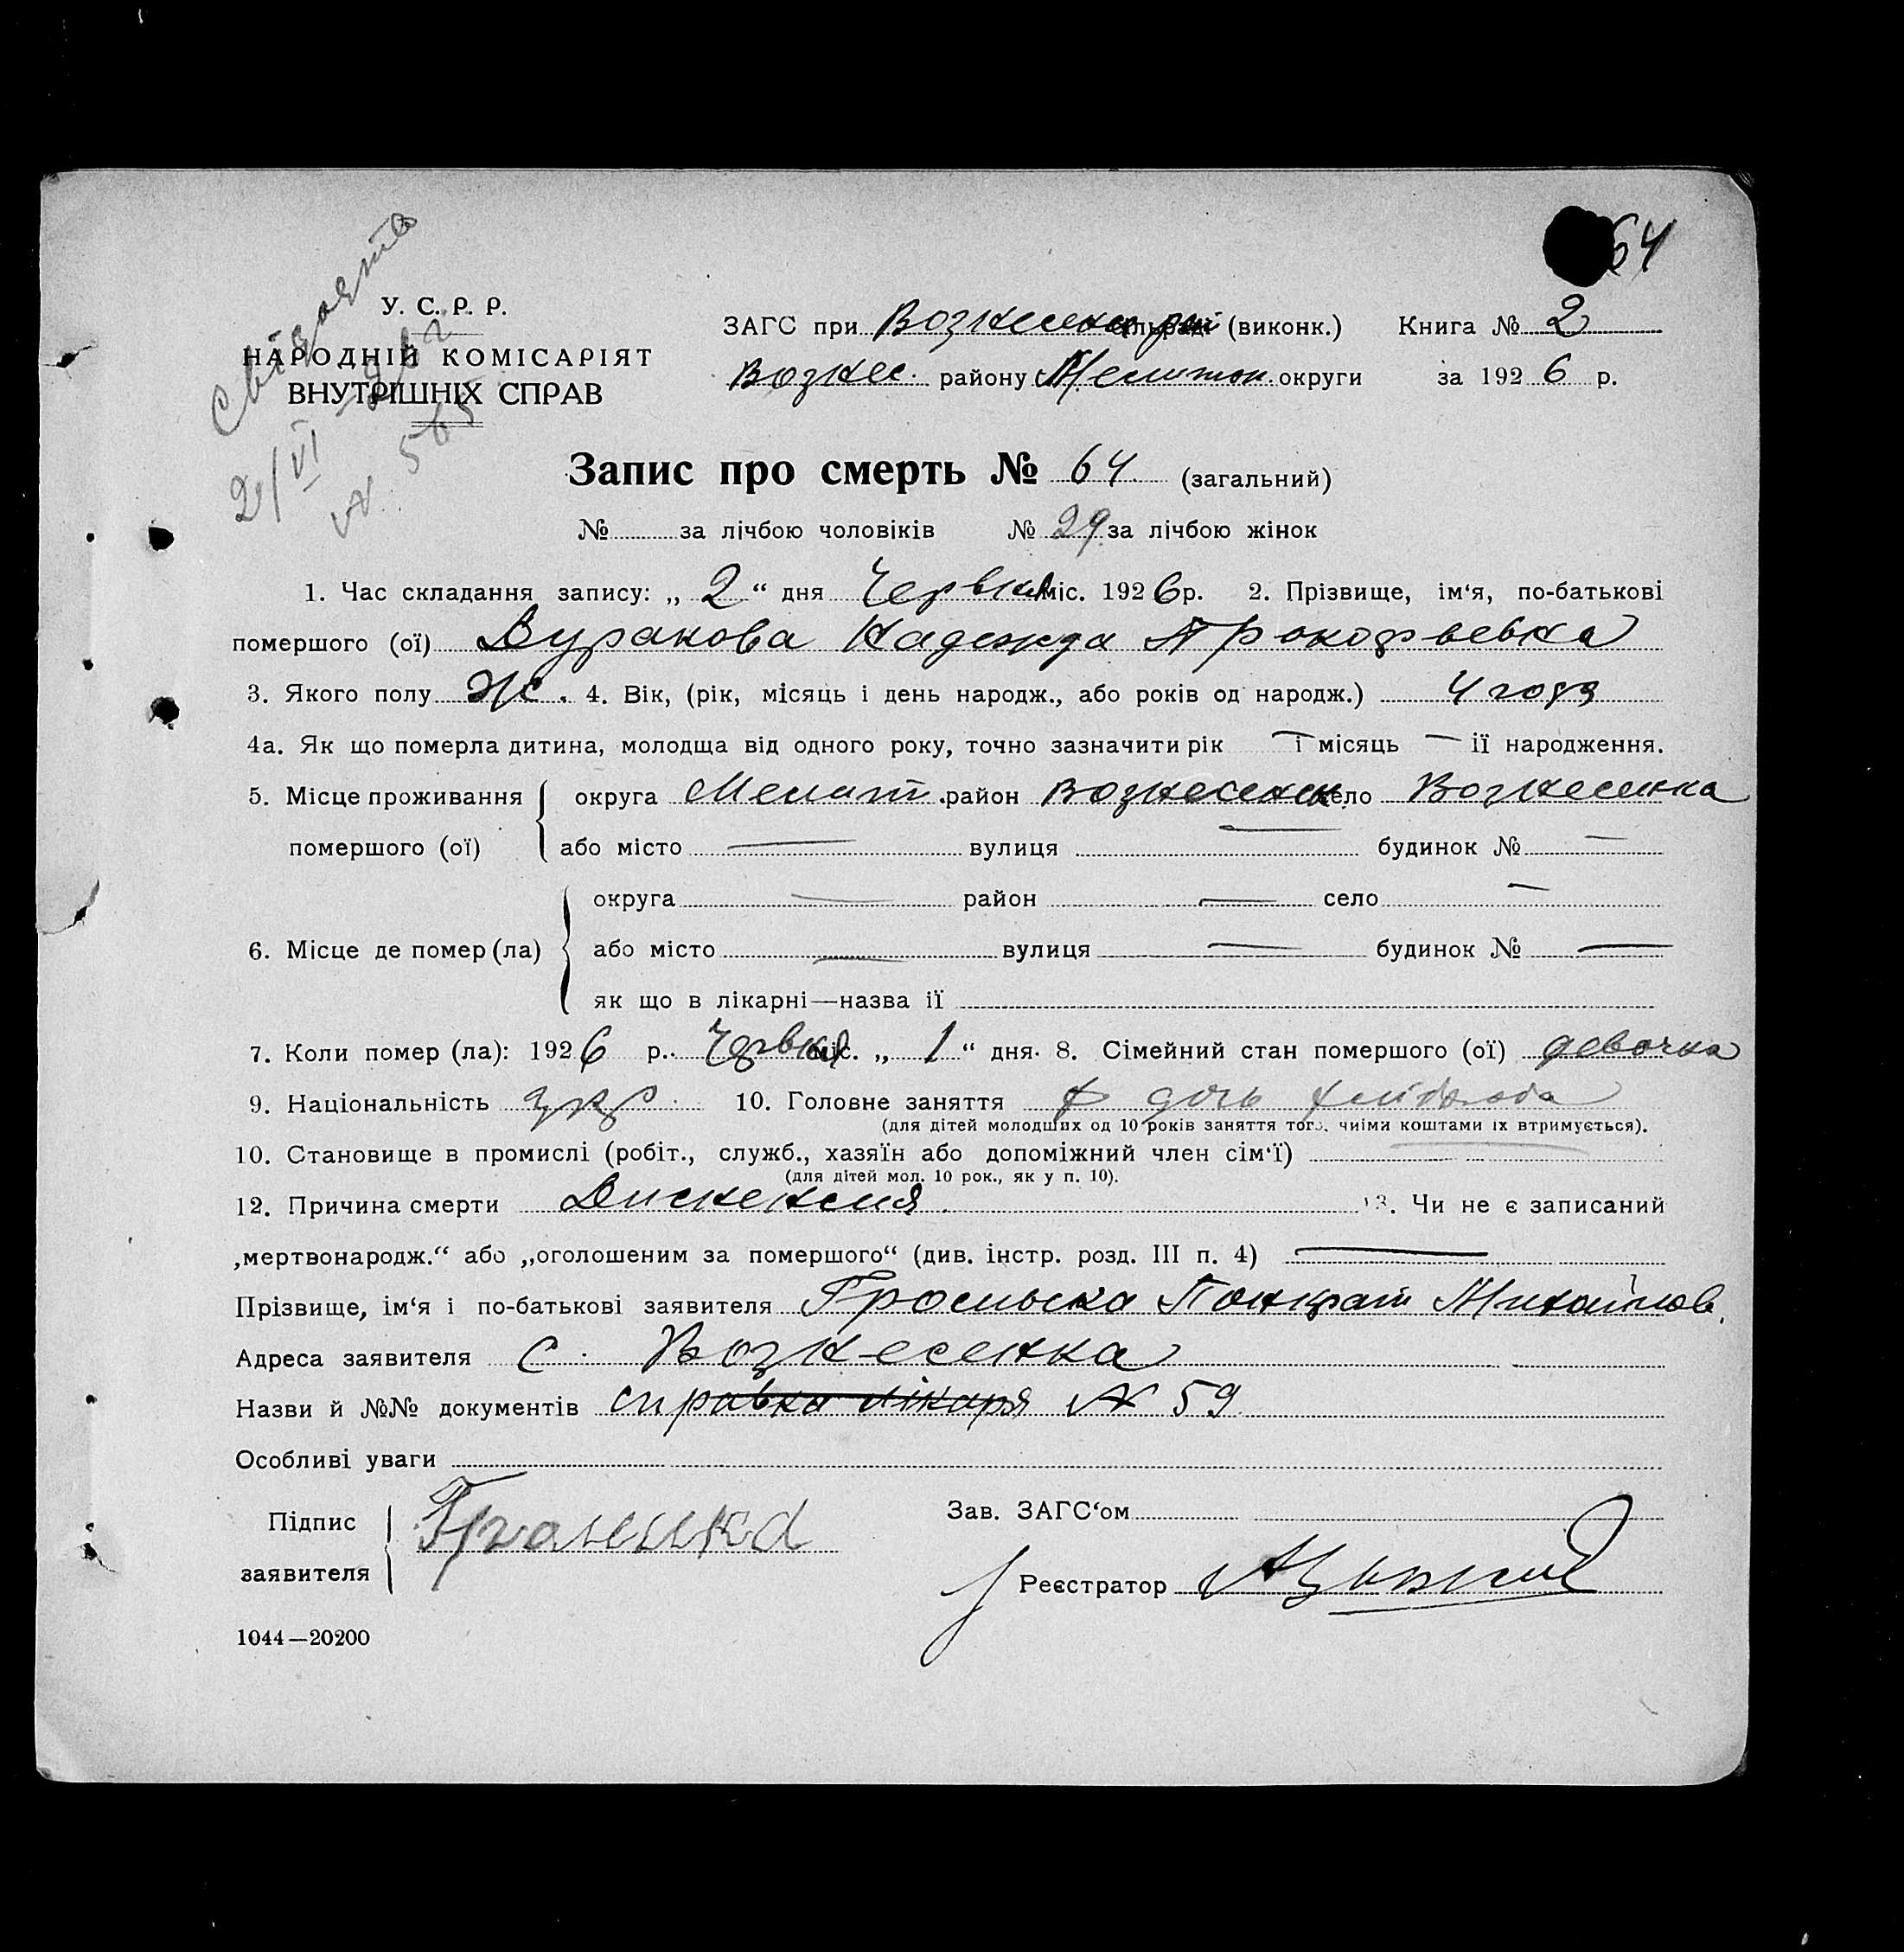 64
Свідоцтв
2/VI – 26 г
№ 565
У. С. Р. Р.
НАРОДНІЙ КОМІСАРІЯТ
ВНУТРІШНІХ СПРАВ
ЗАГС при Вознесенск рай (виконк.) Книга № 2
Вознес. району Мелитоп. округи за 1926 р.
Запис про смерть № 64 (загальний)
№ за лічбою чоловіків № 29 за лічбою жінок
1. Час складання запису: „ 2 “ дня Червня міс. 1926 р. 2. Прізвище, ім‘я, по-батькові
помершого (ої) Дуракова Надежда Прокофьевна
3. Якого полу Ж. 4. Вік, (рік, місяць і день народж., або років од народж.) 4 года
4а. Як що померла дитина, молодща від одного року, точно зазначити рік — і місяць — її народження.
5. Місце проживання помершого (ої) округа Мелит. район Вознесенск. село Вознесенка
або місто — вулиця — будинок № —
6. Місце де помер (ла) округа — район — село —
або місто — вулиця — будинок № —
як що в лікарні—назва її
7. Коли помер (ла): 1926 р. Червня міс. „ 1 “ дня. 8. Сімейний стан помершого (ої) девочка
9. Національність укр. 10. Головне заняття дочь хлібороба
(для дітей молодших од 10 років заняття того, чиіми коштами іх втримується).
10. Становище в промислі (робіт., служб., хазяїн або допоміжний член сім‘ї) —
(для дітей мол. 10 рок., як у п. 10).
12. Причина смерти 13. Чи не є записаний
„мертвонародж.“ або „оголошеним за помершого“ (див. інстр. розд. III п. 4) —
Прізвище, ім‘я і по-батькові заявителя Панкрат Михайлов.
Адреса заявителя с. Вознесенка
Назви й №№ документів справка лікаря № 59
Особливі уваги
Підпис заявителя
Зав. ЗАГС‘ом
Реєстратор
1044—20200